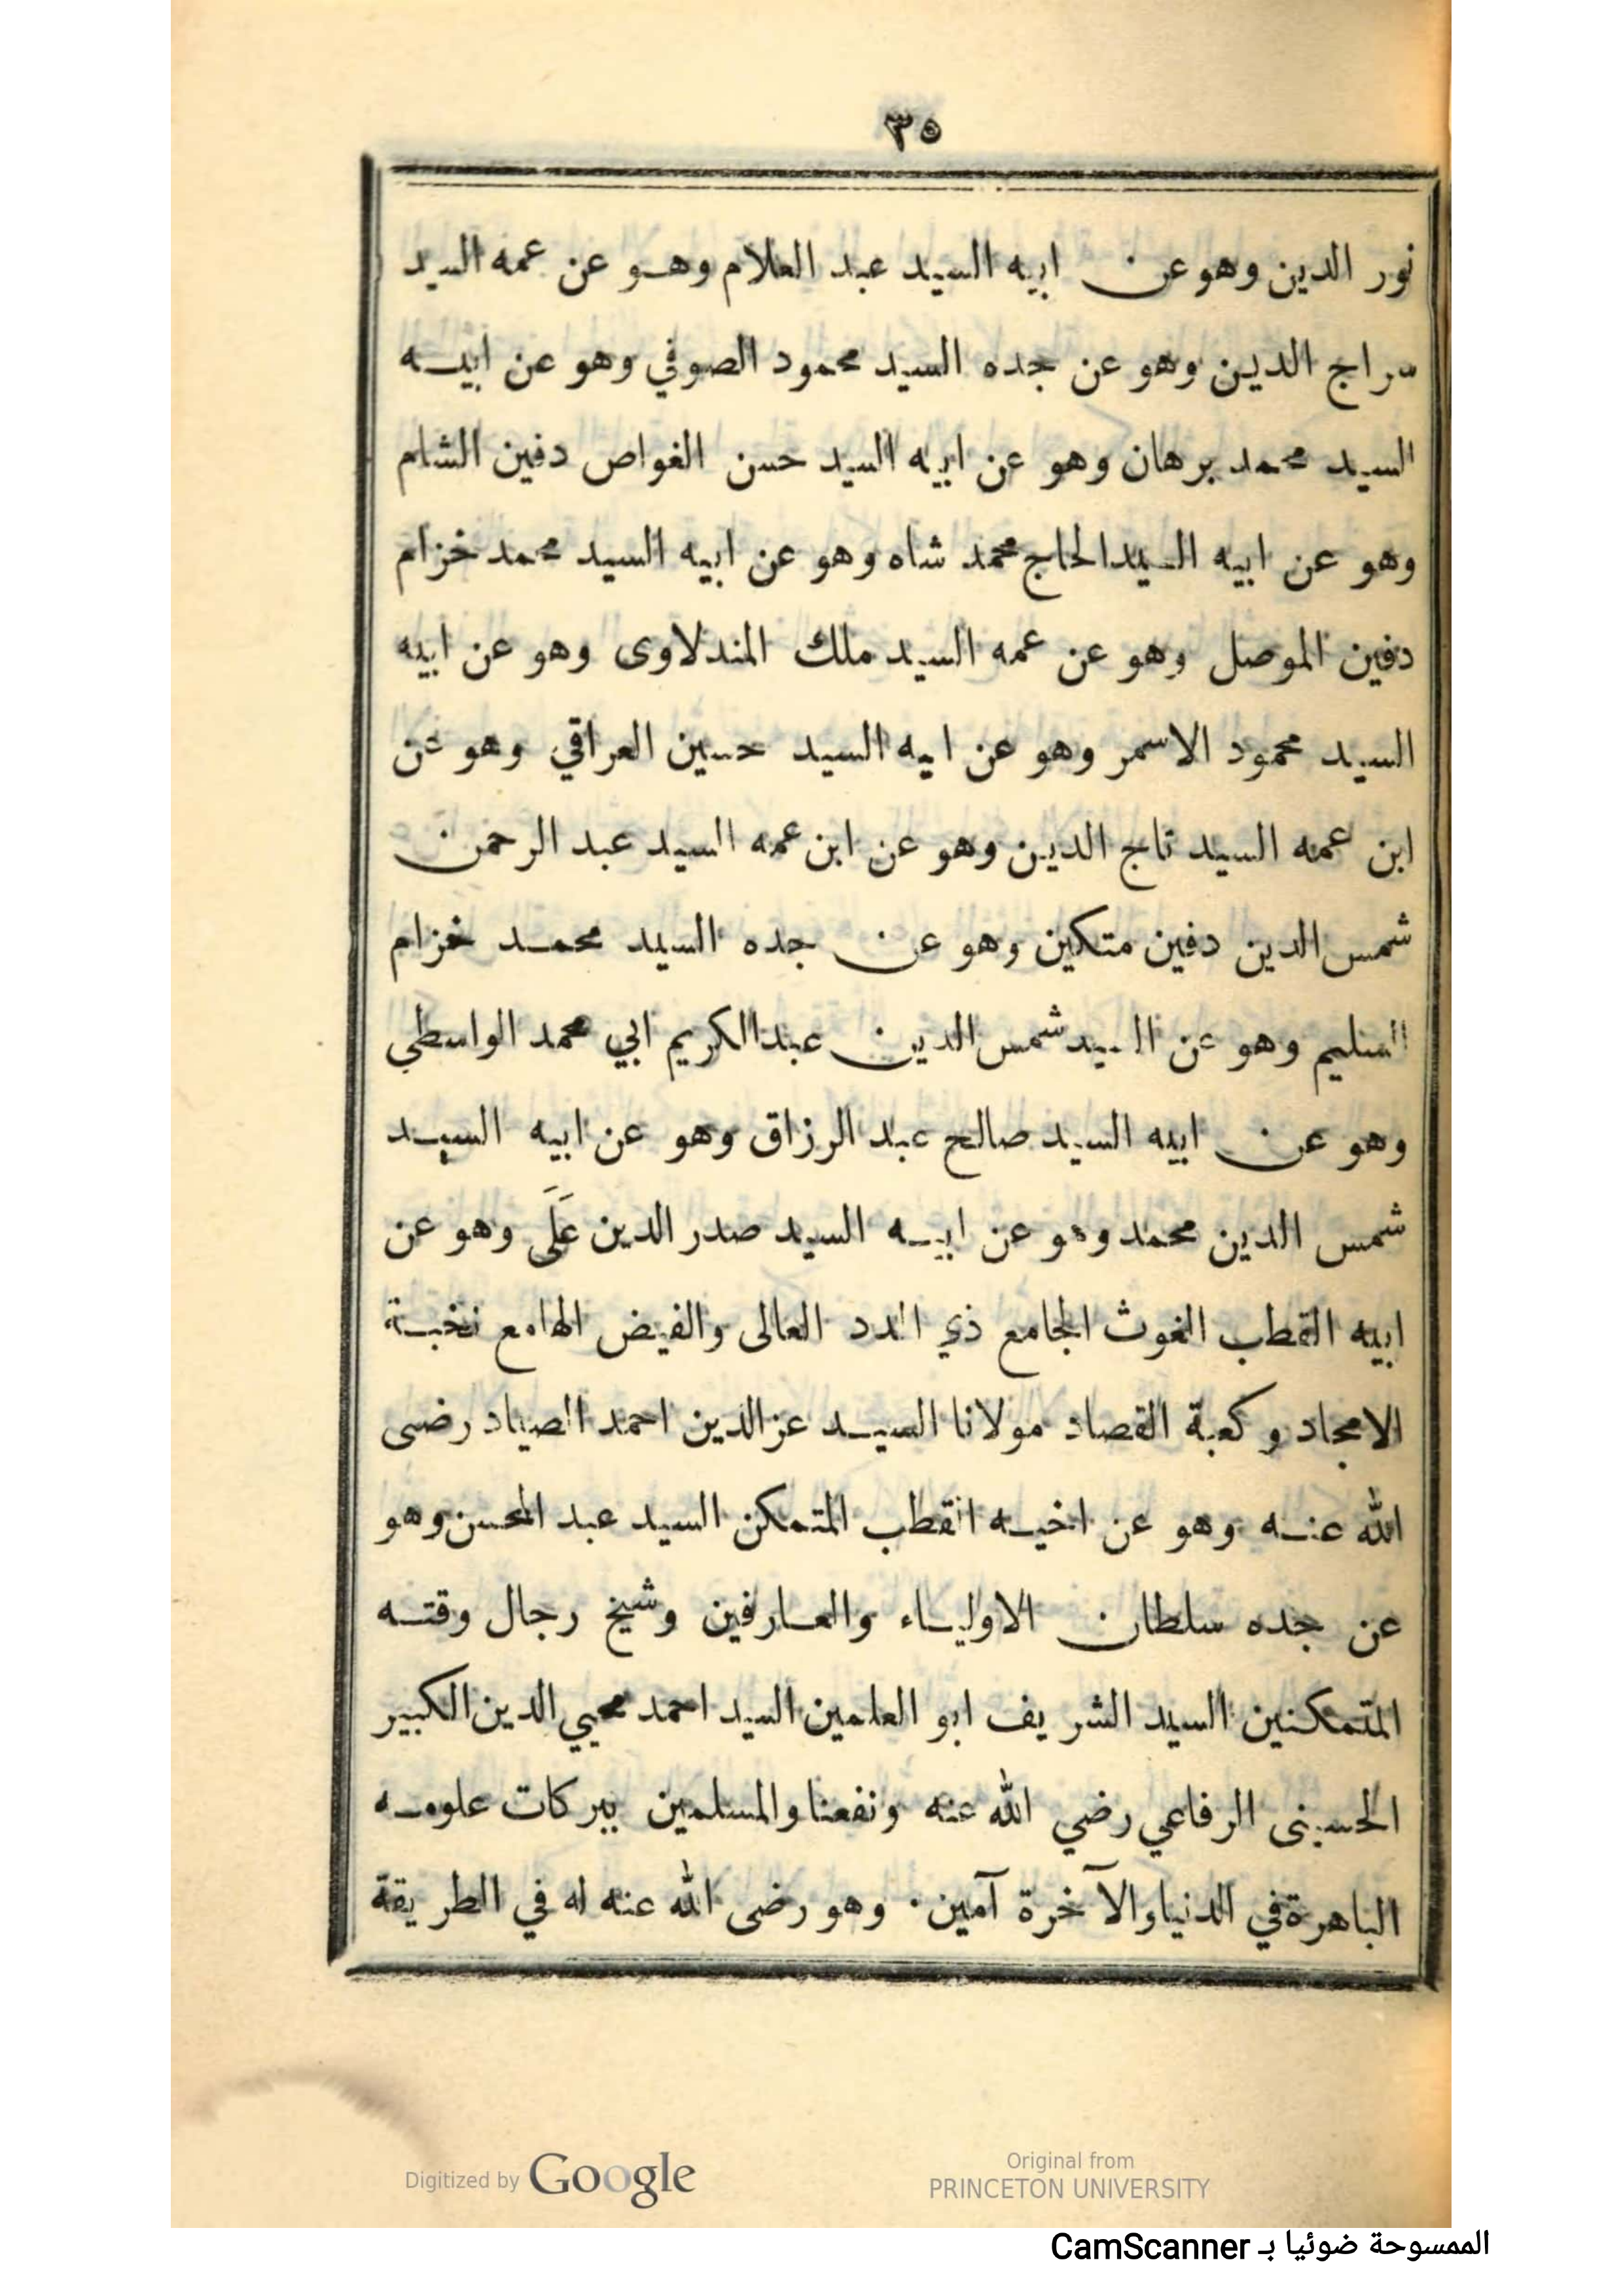 ٣٥
نور الدين وهو عن ابيه السيد عبد العلام وهو عن عمه السيد
سراج الدين وهو عن جده السيد محمود الصوفي وهو عن ابيه
السيد محمد برهان وهو عن ابيه السيد حسن الغواص دفين الشام
وهو عن ابيه السيد الحاج محمد شاه وهو عن ابيه السيد محمد خزام
دفين الموصل وهو عن عمه السيد ملك المندلاوى وهو عن ابيه
السيد محمود الاسمر وهو عن ابيه السيد حسين العراقي وهو عن
ابن عمه السيد تاج الدين وهو عن ابن عمه السيد عبد الرحمن
شمس الدين دفين متكين وهو عن جده السيد محمد خزام
السليم وهو عن السيد شمس الدين عبد الكريم ابي محمد الواسطي
وهو عن ابيه السيد صالح عبد الرزاق وهو عن ابيه السيد
شمس الدين محمد وهو عن ابيه السيد صدر الدين عَلَى وهو عن
ابيه القطب الغوث الجامع ذي المدد العالى والفيض الهامع نخبة
الامجاد وكعبة القصاد مولانا السيد عز الدين احمد الصياد رضى
الله عنه وهو عن اخيه القطب المتمكن السيد عبد المحسن وهو
عن جده سلطان الاولياء والعارفين وشيخ رجال وقته
المتمكنين السيد الشريف ابو العلمين السيد احمد محيي الدين الكبير
الحسينى الرفاعي رضي الله عنه ونفعنا والمسلمين ببركات علومه
الباهرة في الدنيا والآخرة آمين · وهو رضى الله عنه له في الطريقة
Digitized by Google
Original from
PRINCETON UNIVERSITY
الممسوحة ضوئيا بـ CamScanner